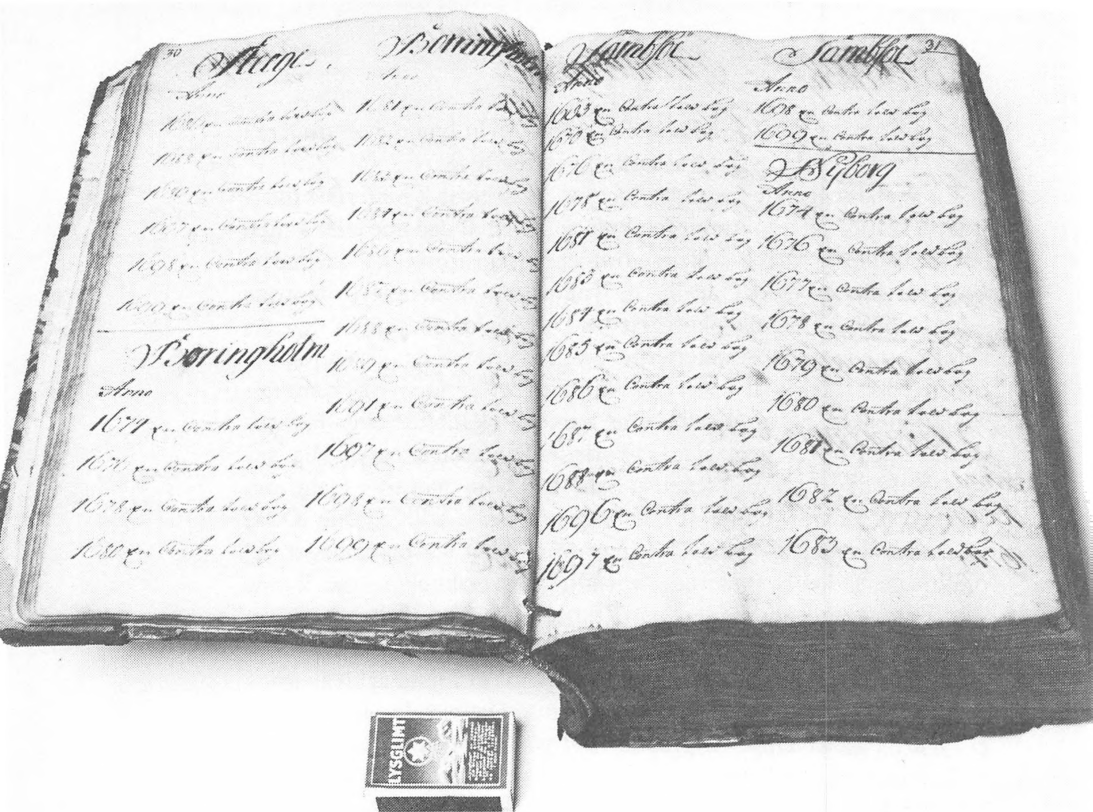 30
Stege
Anno
1686 en Contra told bog
1688 en Contra told bog
1690 en Contra told bog
1697 en Contra told bog
1698 en Contra told bog
1699 en Contra told bog
Boringholm
Anno
1674 en Contra told bog
en Contra told bog
1678 en Contra told bog
1680 en Contra told bog
Boringholm
Anno
1681 en Contra told bog
1682 en Contra told bog
1683 en Contra told bog
1684 en Contra told bog
1686 en Contra told bog
1687 en Contra told bog
1688 en Contra told bog
1689 en Contra told bog
1691 en Contra told bog
1697 en Contra told bog
1698 en Contra told bog
1699 en Contra told bog
Sambsöe
Anno
en Contra told bog
1670 en Contra told bog
1676 en Contra told bog
1678 en Contra told bog
1681 en Contra told bog
1683 en Contra told bog
1684 en Contra told bog
1685 en Contra told bog
1686 en Contra told bog
1687 en Contra told bog
1688 en Contra told bog
1696 en Contra told bog
1697 en Contra told bog
Sambsöe
31
Anno
1698 en Contra told bog
1699 en Contra told bog
Nyborg
Anno
1674 en Contra told bog
1676 en Contra told bog
1677 en Contra told bog
1678 en Contra told bog
1679 en Contra told bog
1680 en Contra told bog
1681 en Contra told bog
1682 en Contra told bog
1683 en Contra told bog
LYSGLIMT